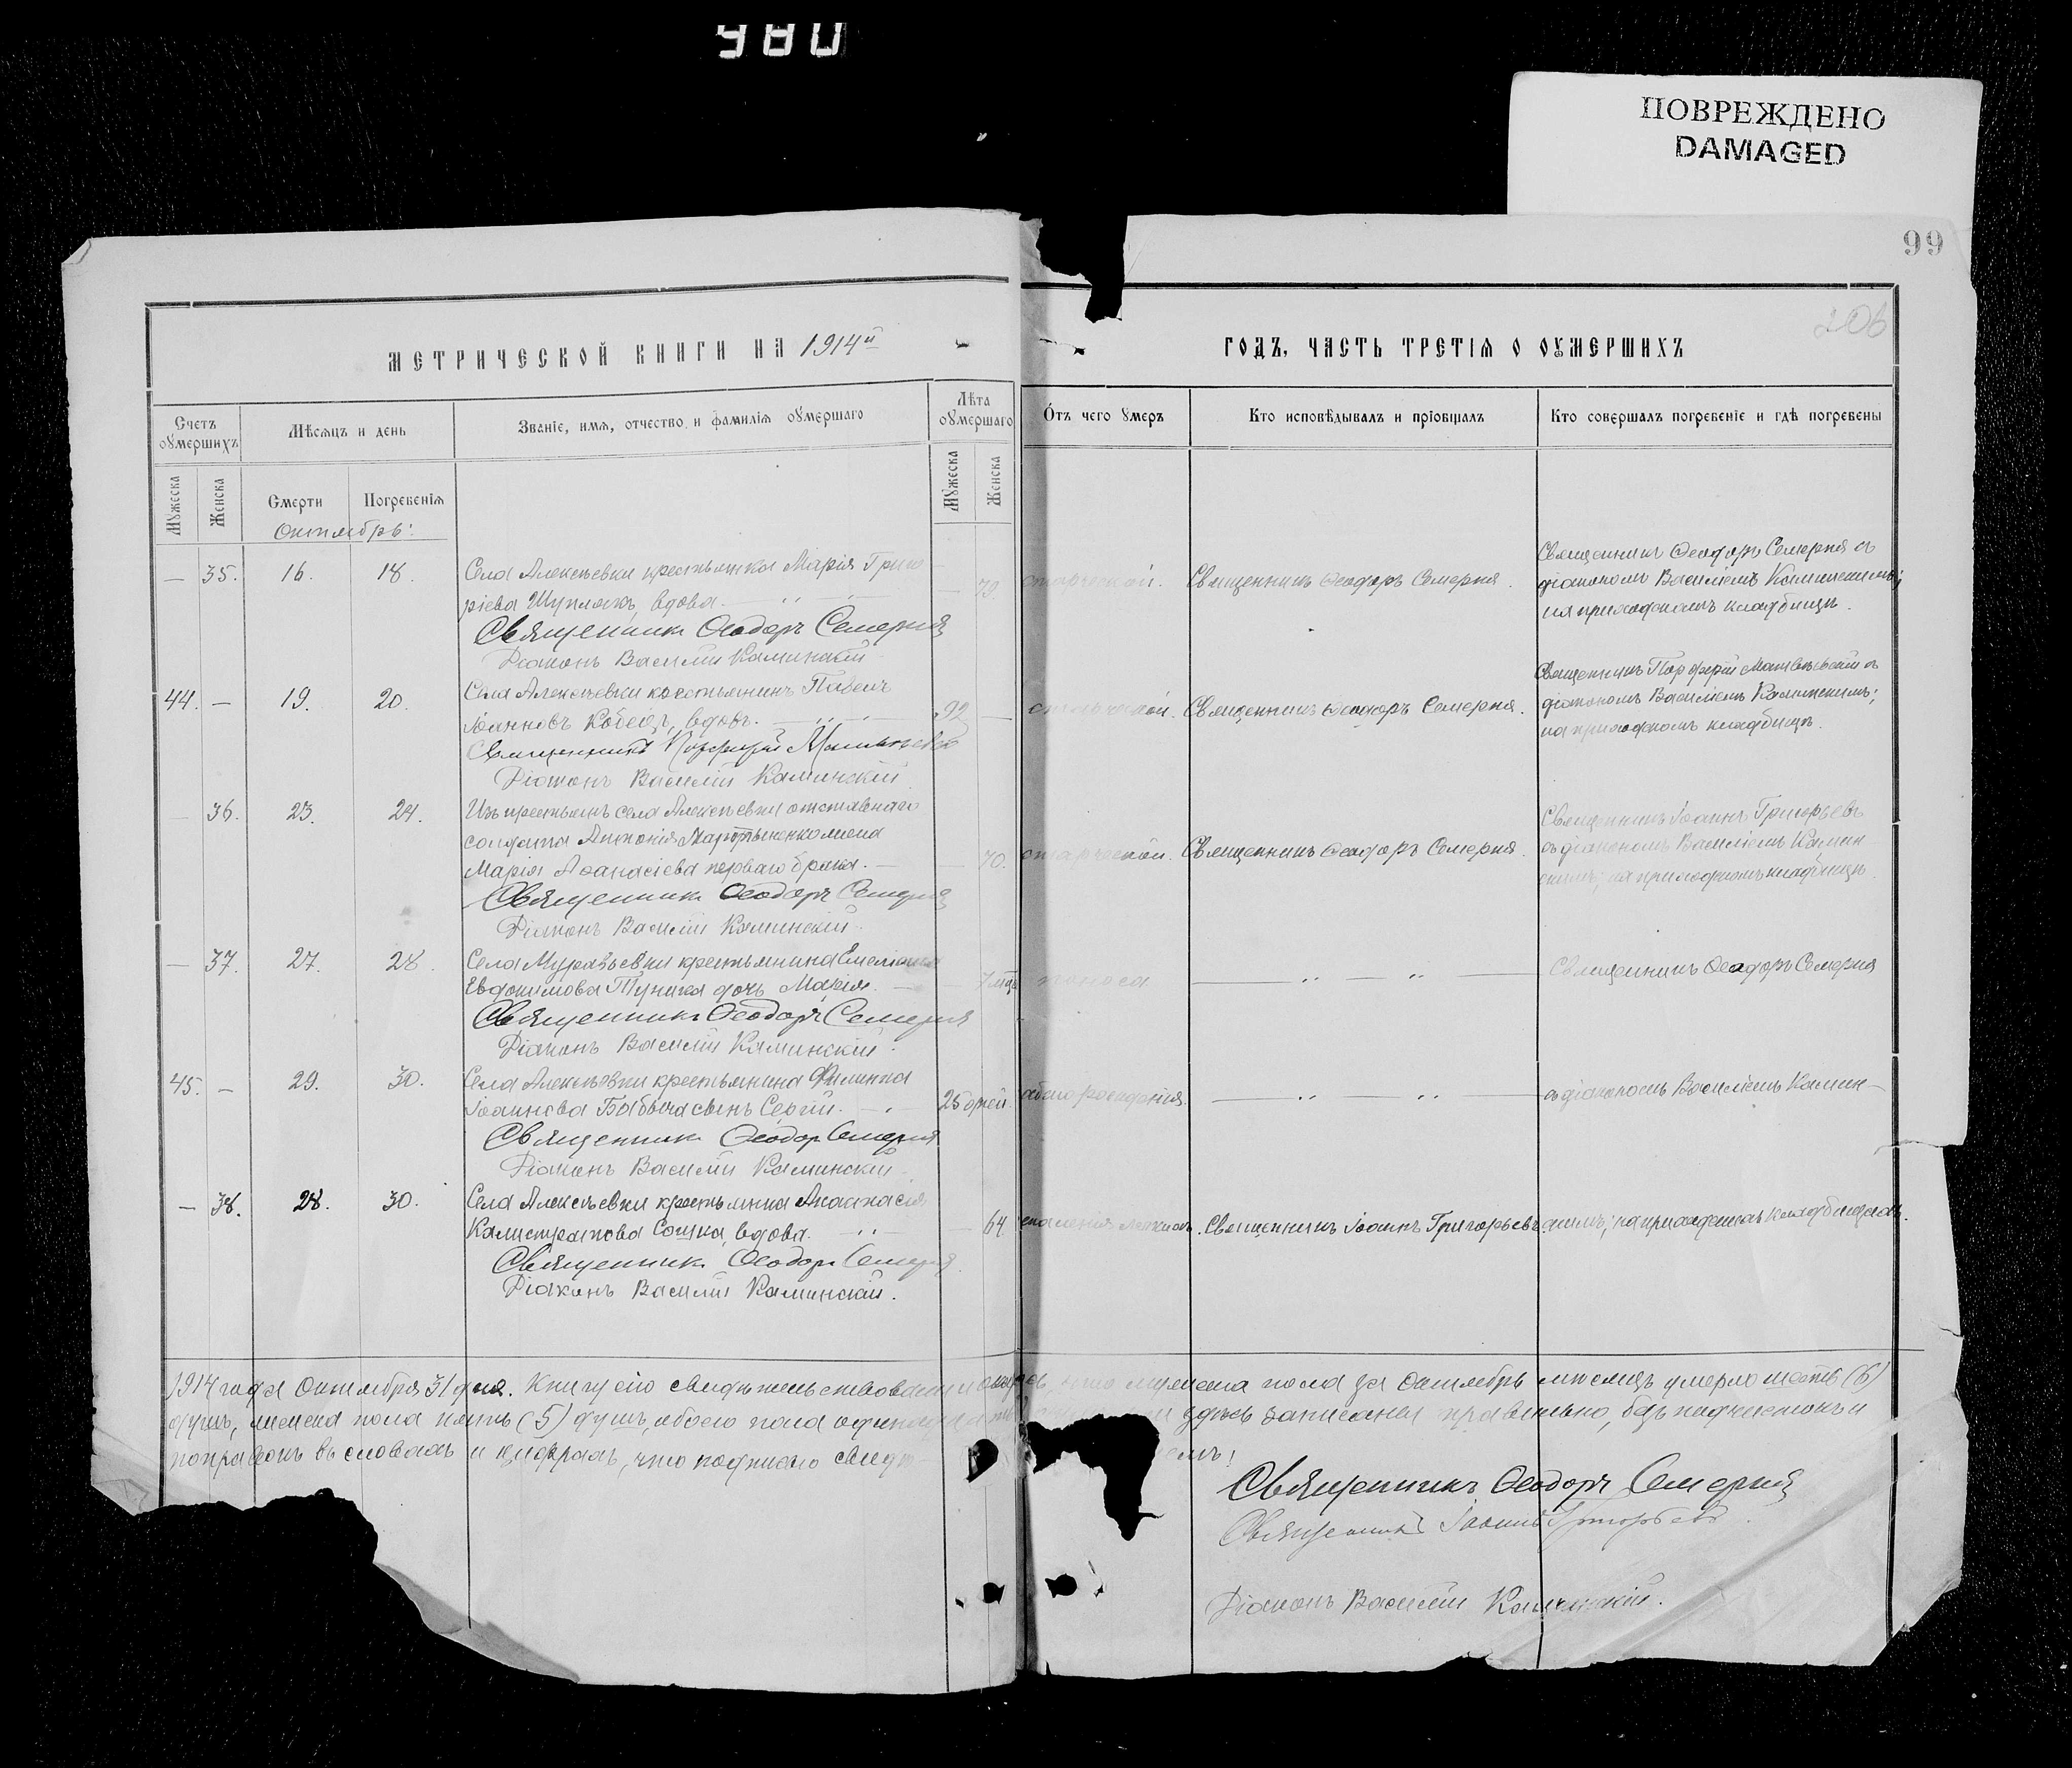 980
ПОВРЕЖДЕНО
DAMAGED
99
206
МЕТРИЧЕСКОЙ КНИГИ НА 1914й
ГОДЪ, ЧАСТЬ ТРЕТІЯ О ОУМЕРШИХЪ
Счетъ оумершихъ
Мѣсяцъ и день
Званіе, имя, отчество и фамилія оумершаго
Лѣта оумершаго
Отъ чего умеръ
Кто исповѣдывалъ и пріобщалъ
Кто совершалъ погребеніе и гдѣ погребены
Мужеска
Женска
Смерти
Погребенія
Мужеска
Женска
Октябрь:
— 35. 16. 18.
Села Алексѣевки крестьянка Марія Григо
ріева Шупляк, вдова.
79.
старческой.
Священникъ Ѳеодоръ Семерня.
Священникъ Ѳеодоръ Семерня съ
діакономъ Василіемъ Каминскимъ;
на приходскомъ кладбищѣ.
Священникъ Ѳеодоръ Семерня
Діаконъ Василій Каминскій
44. — 19. 20.
Села Алексѣевки крестьянинъ Павелъ
Іоанновъ Кобецъ, вдовъ.
92
старческой.
Священникъ Ѳеодоръ Семерня.
Священникъ Порфирій Матвѣевскій съ
діакономъ Василіемъ Каминскимъ;
на приходскомъ кладбищѣ.
Священникъ Порфирій
Діаконъ Василій Каминскій
36. 23. 24.
Изъ крестьянъ села Алексѣевки отставнаго
солдата Антонія Мартыненко жена
Марія Аѳанасіева перваго брака.
70.
старческой.
Священникъ Ѳеодоръ Семерня.
Священникъ Іоаннъ Григорьевъ
съ діакономъ Василіемъ Камин
скимъ; на приходскомъ кладбищѣ.
Священникъ Ѳеодоръ Семерня
Діаконъ Василій Каминскій
— 37. 27. 28.
Села Муравьевки крестьянина Емеліана
Евдокимова Туника дочь Марія.
7 мѣс
поноса
Священникъ Ѳеодоръ Семерня
Священникъ Ѳеодоръ Семерня
Діаконъ Василій Каминскій
45. — 29. 30.
Села Алексѣевки крестьянина Филиппа
Іоаннова Бабыча сынъ Сергій.
25 дней.
слабаго рожденія.
съ діакономъ Василіемъ Камин—
Священникъ Ѳеодоръ Семерня
Діаконъ Василій Каминскій
— 38. 28. 30.
Села Алексѣевки крестьянка Анастасія
Калистратова Сошка, вдова.
64.
воспаленія легкихъ.
Священникъ Іоаннъ Григорьевъ.
скимъ; на приходскихъ кладбищахъ.
Священникъ Ѳеодоръ Семерня
Діаконъ Василій Каминскій.
1914 года Октября 31 дня. Книгу сію свидѣтельствовали и что мужеска пола за Октябрь мѣсяцъ умерло шесть (6)
душъ, женска пола пять (5) душъ, обоего пола здѣсь записаны правильно, безъ подчистокъ и
поправокъ въ словахъ и цифрахъ, что подписью свидѣ емъ:
Священникъ Ѳеодоръ Семерня
Священникъ Іоаннъ Григорьевъ.
Діаконъ Василій Каминскій.